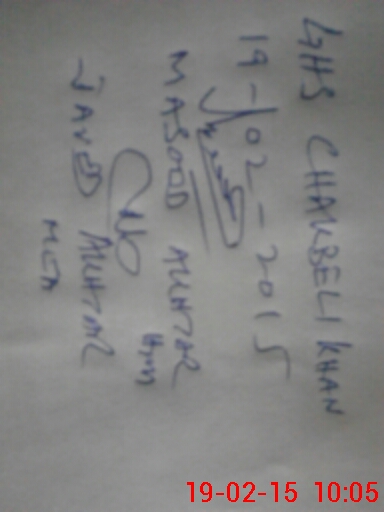 GHS CHAKBELI KHAN
19-02-2015
MASOOD AKHTAR
HM
JAVED AKHTAR
MEA
19-02-15 10:05